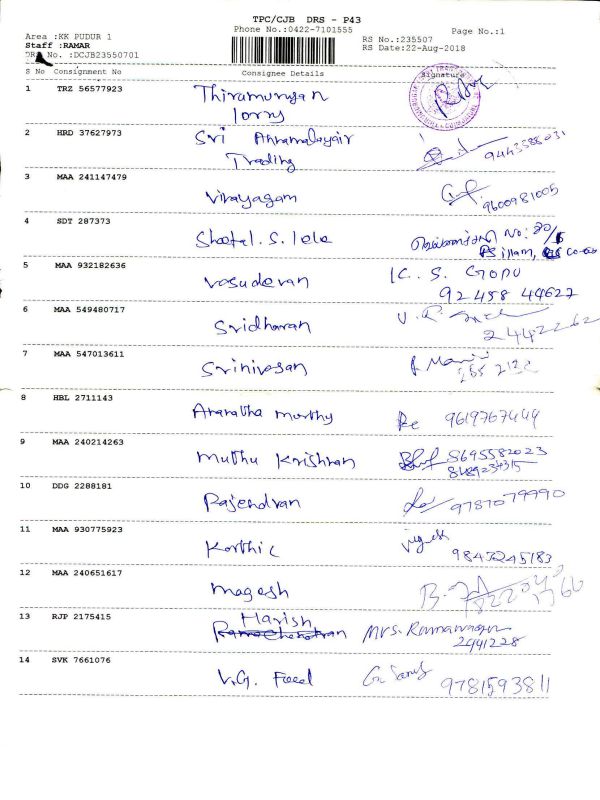 TPC/CJB DRS - P43
Phone No.:0422-7101555
Page No.:1
Area :KK PUDUR 1
Staff :RAMAR
DRS No. :DCJB23550701
RS No.:235507
RS Date:22-Aug-2018
S No Consignment No Consignee Details Signature
1 TRZ 56577923 Thiramurugan
lorry
2 HRD 37627973 Sri Annamalayair
Trading 9443588031
3 MAA 241147479 Vinayagam 9600981005
4 SDT 287373 Sheetal. S. lele No: 20/
illam,
5 MAA 932182636 Vasudevan K. S. GOPU
92458 49627
6 MAA 549480717 Sridharan
2442262
7 MAA 547013611 Srinivasan
265 2122
8 HBL 2711143 Anantha morthy 9619767449
9 MAA 240214263 Muthu Krishnan 8695582023
10 DDG 2288181 Rajendran 9787079990
11 MAA 930775923 Karthic
9843245183
12 MAA 240651617 Magesh
13 RJP 2175415 Harish
Ramachandran Mrs. Ramanayan
2441228
14 SVK 7661076 V.G. Food 9781593811